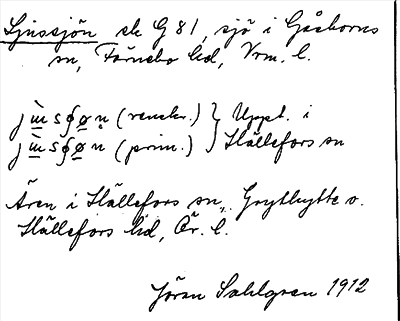 Ljussjön ek G 81, sjö i Gåsborns
sn, Färnebo hd, Vrm. l.
jɯ̀sʃøn (renskr.) } Uppt. i
jɯ̀sʃøn (prim.) } Hällefors sn
Även i Hällefors sn, Grythytte o.
Hällefors hd, Ör. l.
Jöran Sahlgren 1912